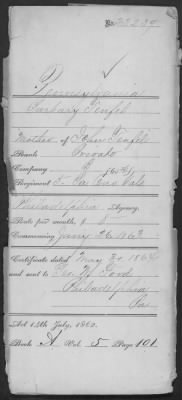 No. 23239
Pennsylvania
Barbary Teufel
Mother of John Teufel
Rank Private
Company
Regiment 5" Pa Res Vols
Philadelphia Agency.
Rate per month, $ 8
Commencing June 26 1862
Certificate dated May 30, 1864
and sent to Geo. W. Ford
Philadelphia
Pa
Act 14th July, 1862.
Book A Vol. 5 Page 101